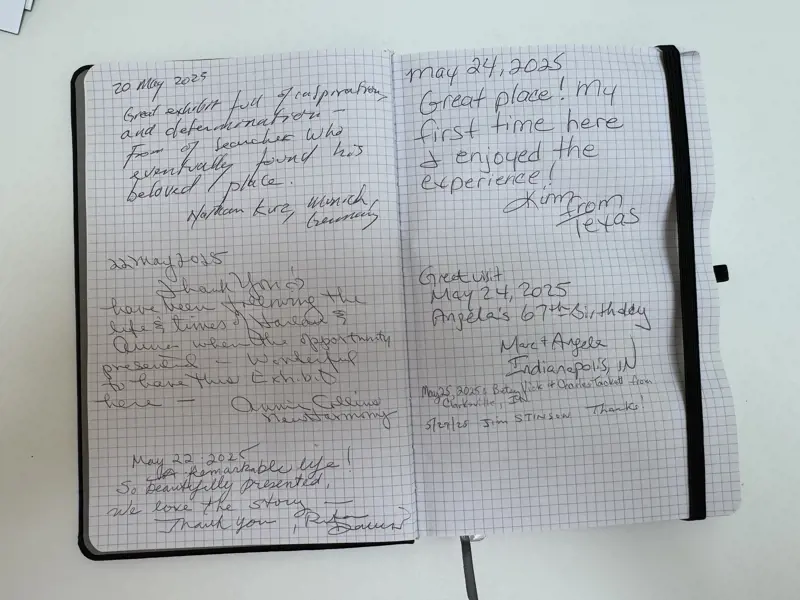 20 May 2025
Great exhibit full of inspiration
and determination –
From of searcher who
eventually found his
beloved place.
Nathan Munich,
Germany
22 May 2025
Thank You :)
have been following the
life & times of Harlan &
Anna when the opportunity
presented – Wonderful
to have this Exhibit
here – Annie Collins
New Harmony
May 22, 2025
A Remarkable life!
So beautifully presented,
We love the story –
Thank you,
May 24, 2025
Great place! My
first time here
& enjoyed the
experience!
Kim from
Texas
Great visit
May 24, 2025
Angela's 67th Birthday
Marc + Angela
Indianapolis, IN
May 25, 2025 & Charles Tackett from
Clarksville, IN
5/27/25 Jim STINSON Thanks!